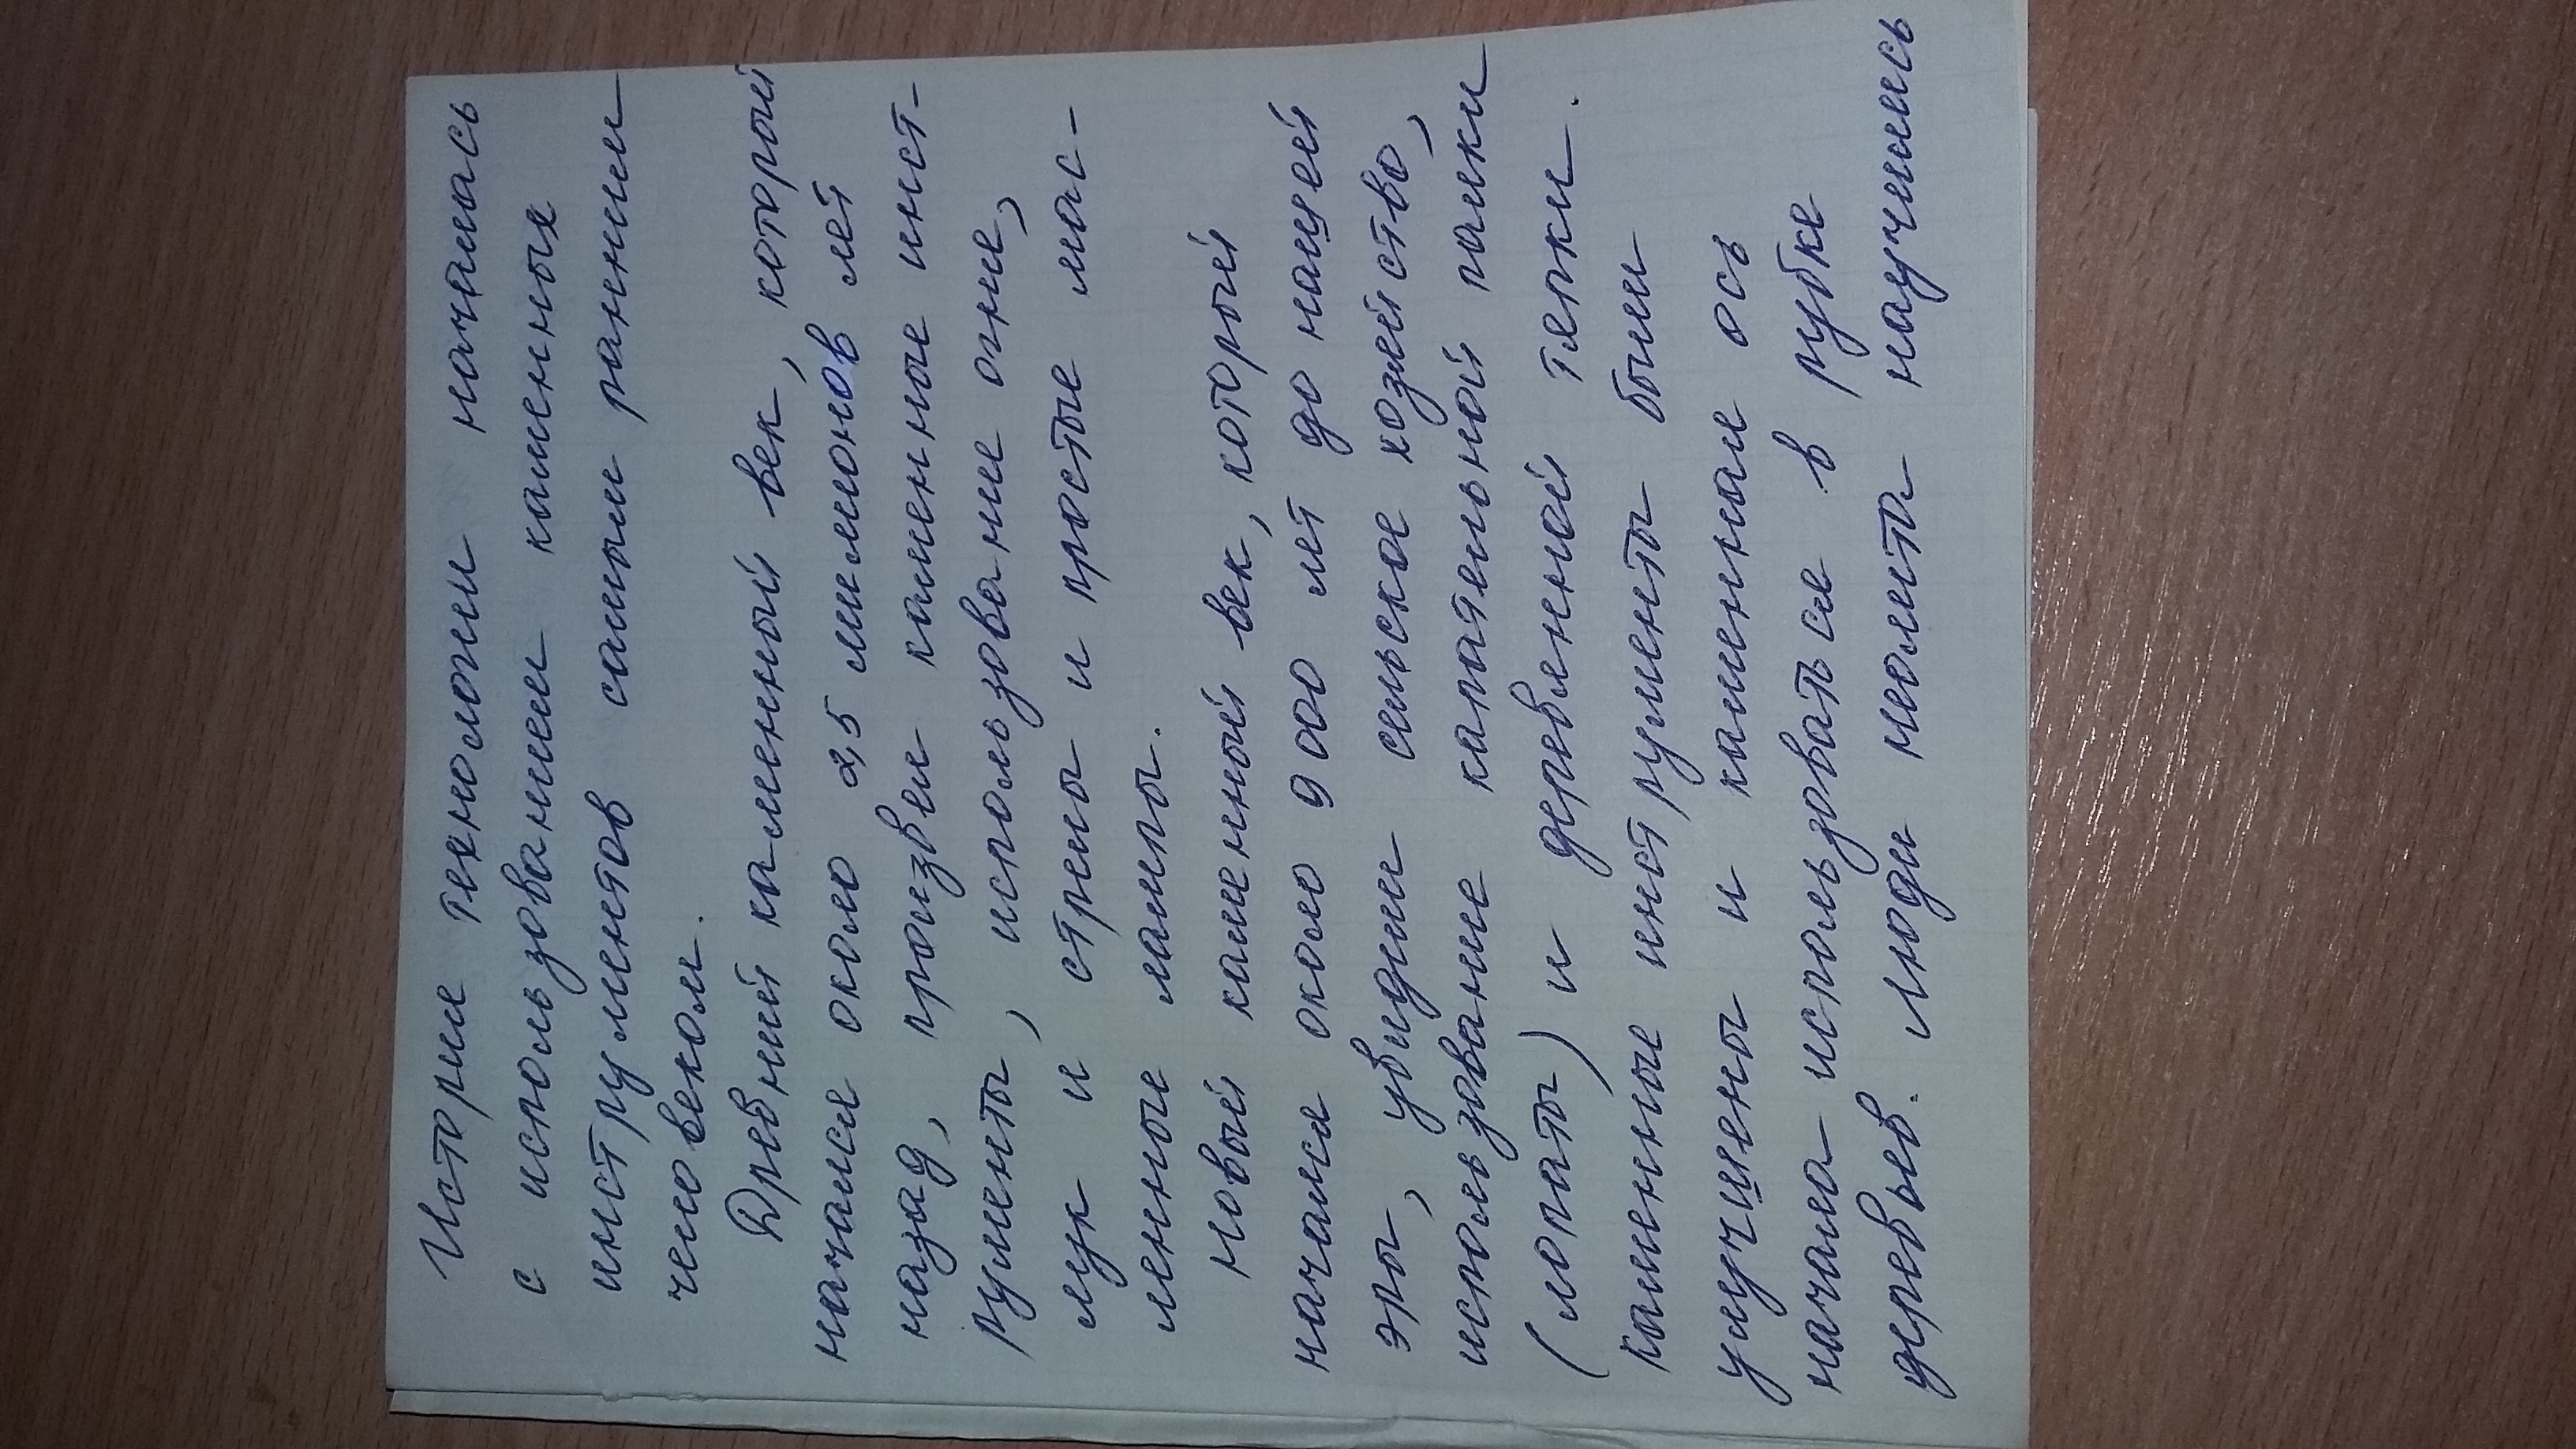 История технологии началась
с использования каменных
инструментов самым ранним
человеком.
Древний каменный век, который
начался около 2,5 миллионов лет
назад, произвел каменные инст-
рументы, использование огня,
лук и стрелы и простые мас-
ленные лампы.
Новый каменный век, который
начался около 9 000 лет до нашей
эры, увидели сельское хозяйство,
использование капательной палки
(лопаты) и деревянной тяпки.
Каменные инструменты были
улучшены и каменная ось
начала использоваться в рубке
деревьев. Люди молита научились